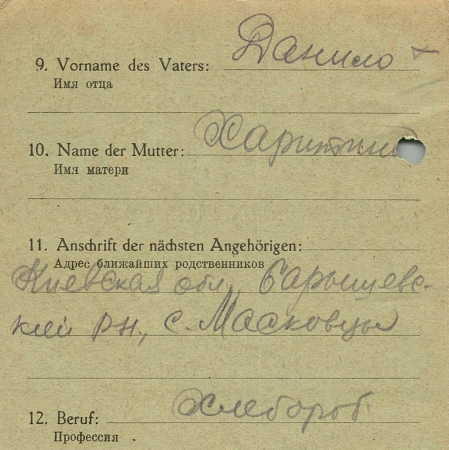 9. Vorname des Vaters: Данило +
Имя отца
10. Name der Mutter: Харитина
Имя матери
11. Anschrift der nächsten Angehörigen:
Адрес ближайших родственников
Киевская обл, Барышевс-
кий рн, с. Масковцы
12. Beruf: Хлебороб
Профессия